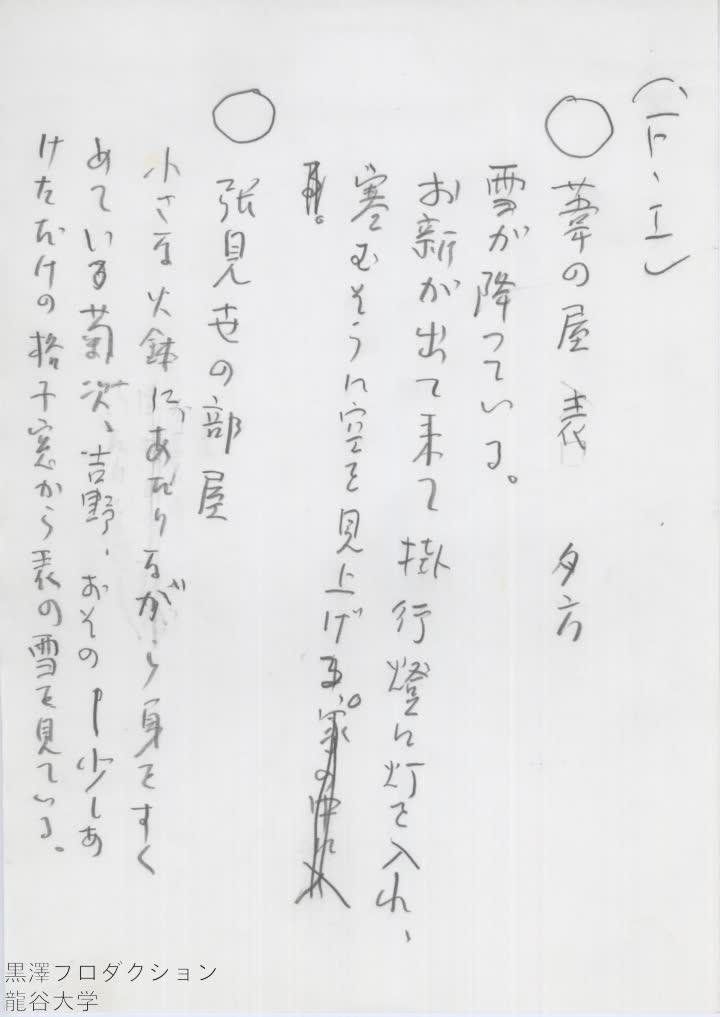 (F・I)
○ 葦の屋 表 夕方
雪が降っている。
お新が出て来て掛行燈に灯を入れ、
寒むそうに空を見上げる。家の中に入
る。
○ 張見世の部屋
小さな火鉢にあたりながら身をすく
めている菊次、吉野、おその――少しあ
けただけの格子窓から表の雪を見ている。
黒澤プロダクション
龍谷大学